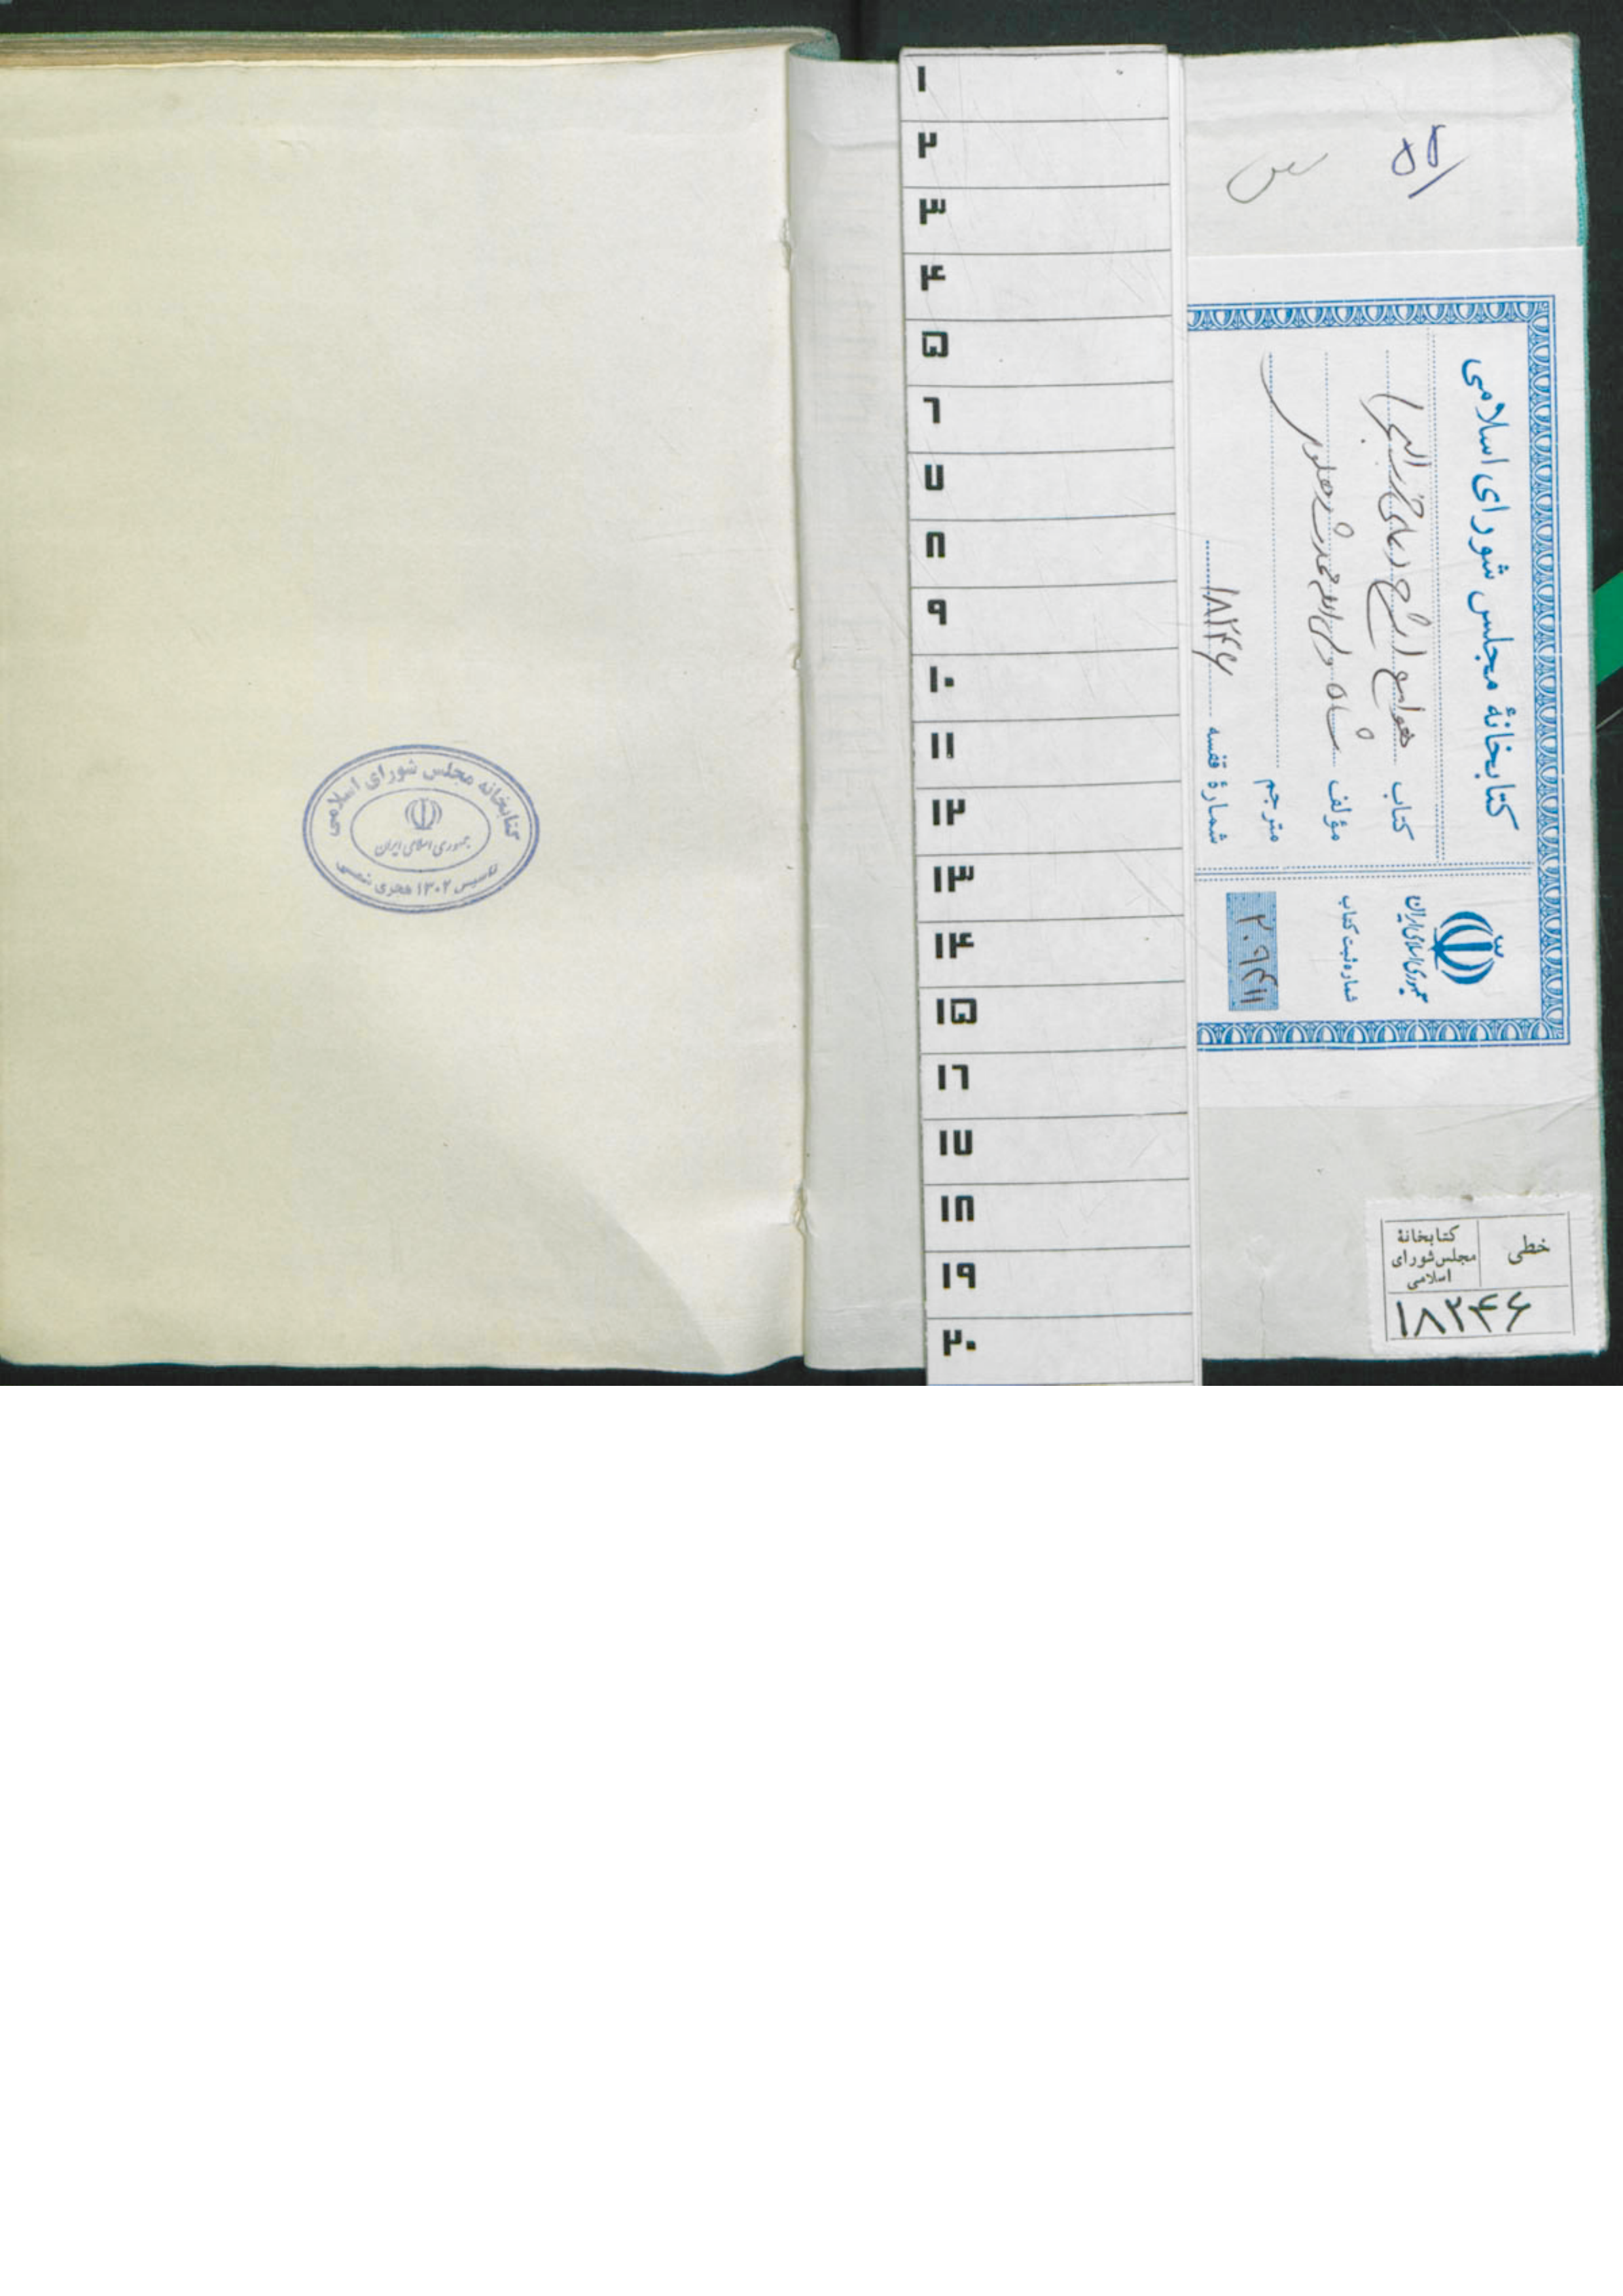 ۱
۲
۳
۴
۵
۶
۷
۸
۹
۱۰
۱۱
۱۲
۱۳
۱۴
۱۵
۱۶
۱۷
۱۸
۱۹
۲۰
کتابخانهٔ مجلس شورای اسلامی
کتاب هوامع شرح دعای حزب البحر
مؤلف شاه ولی الله محدث دهلوی
مترجم
شمارهٔ قفسه ۱۸۲۴۶
جمهوری اسلامی ایران
شماره ثبت کتاب
کتابخانهٔ مجلس شورای اسلامی
خطی
۱۸۲۴۶
کتابخانه مجلس شورای اسلامی
جمهوری اسلامی ایران
تاسیس ۱۳۰۲ هجری شمسی